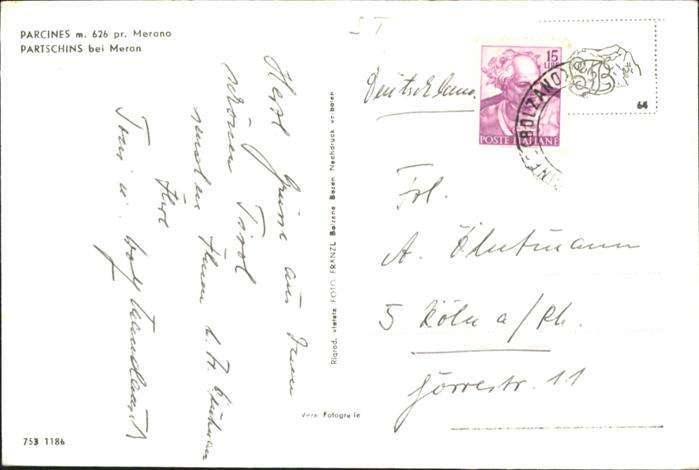 PARCINES m. 626 pr. Merano
PARTSCHINS bei Meran
Herzl. Grüsse aus dem
schönen Tirol
senden Ihnen
Ihre
Toni u.
753 1186
Riprod. vietata FOTO FRANZL Bolzano Bozen Nachdruck verboten
Vera Fotografie
Deutschland
15 LIRE
POSTE ITALIANE
BOLZANO
64
Frl.
A.
5 Köln a/Rh.
Görrestr. 11